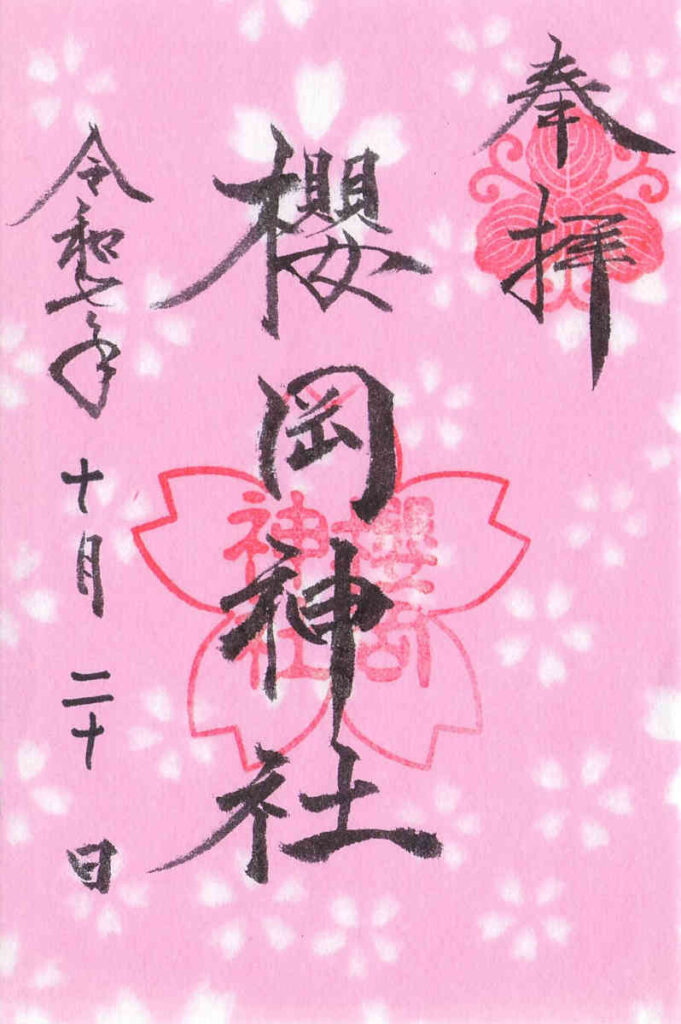 奉拝
櫻岡神社
櫻岡
神社
令和七年 十月 二十 日